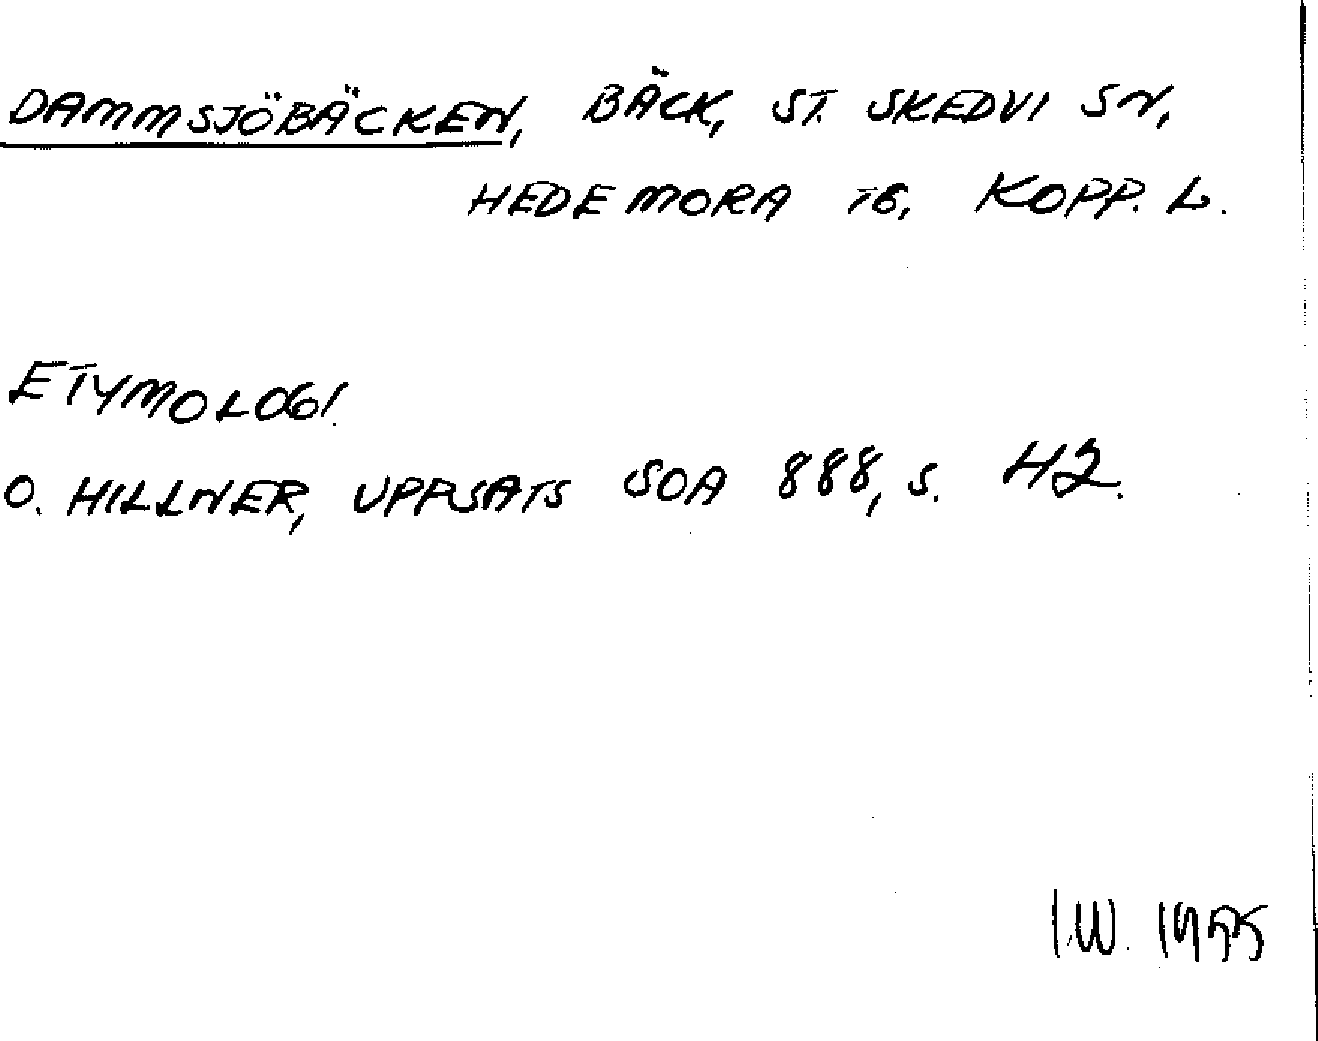 DAMMSJÖBÄCKEN, BÄCK, ST. SKEDVI SN,
HEDEMORA TG, KOPP. L.
ETYMOLOGI.
O. HILLNER, UPPSATS SOA 888, S. 42.
I.W. 1955